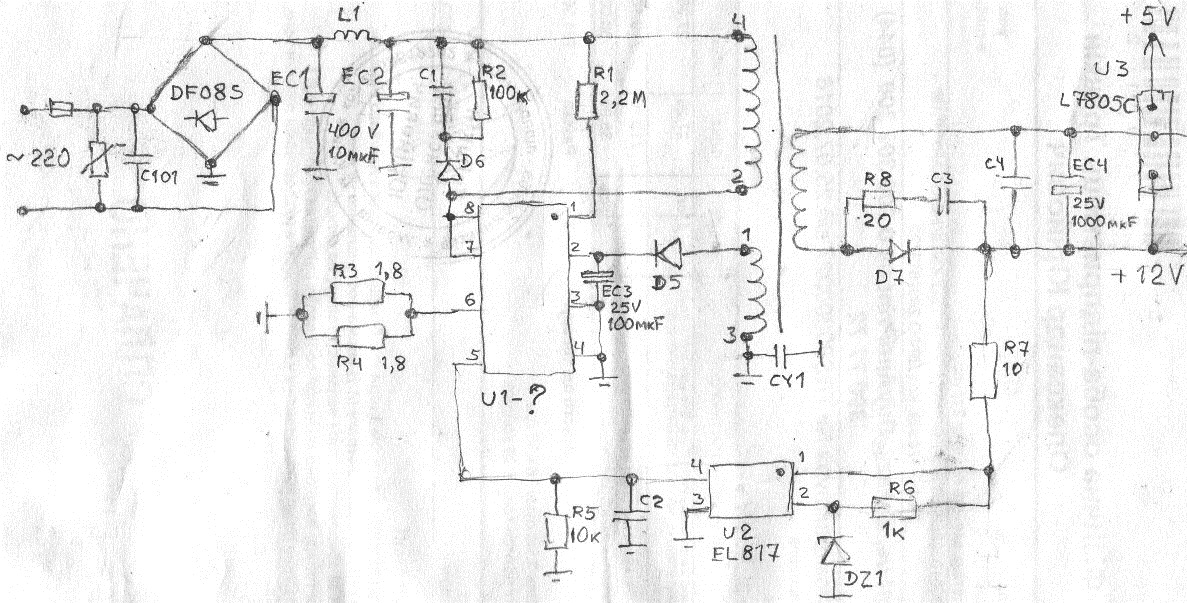 L1
4
+5V
U3
L7805C
DF08S
EC1
EC2
C1
R2
100K
R1
2,2M
400V
10мкF
~220
C101
D6
2
8
1
7
2
6
3
5
4
R3 1,8
R4 1,8
U1-?
EC3
25V
100мкF
D5
1
3
CY1
R8
20
C3
D7
C4
EC4
25V
1000мкF
+12V
R7
10
4
3
1
2
U2
EL817
R6
1K
R5
10к
C2
DZ1